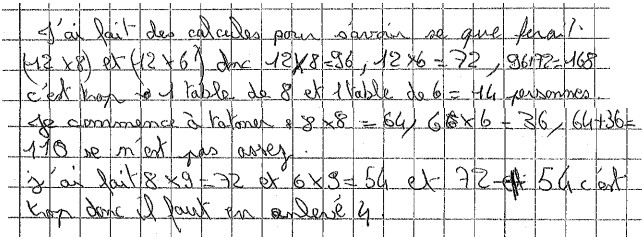 J'ai fait des calcules pour savoir se que ferait.
(12 x 8) et (12 x 6) donc 12 x 8 = 96, 12 x 6 = 72, 96+72=168
c'est trop → 1 table de 8 et 1 table de 6 = 14 personnes.
Je commence à tatoner : 8 x 8 = 64, 6 x 6 = 36, 64+36=
110 se n'est pas assez.
j'ai fait 8 x 9 = 72 et 6 x 9 = 54 et 72 54 c'est
trop donc il faut en enlevé 4